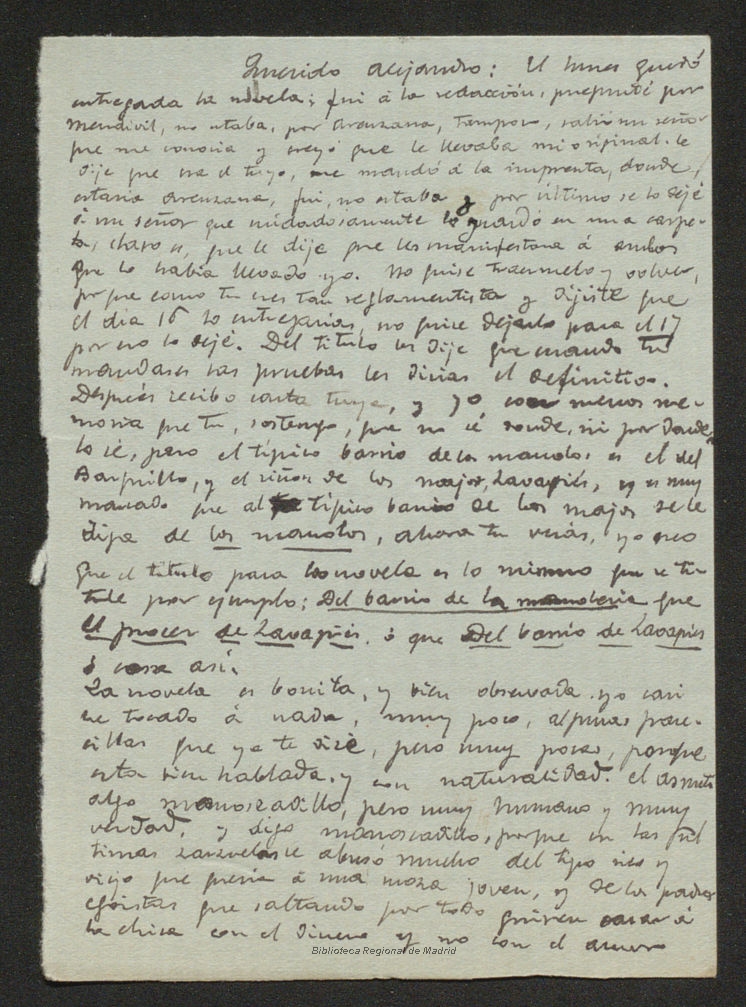 Querido Alejandro: El lunes quedó
entregada la novela; fui á la redacción, pregunté por
Mendivil, no estaba, por Areuzana, tampoco, salió un señor
que me conocia y creyó que le llevaba mi original. le
dije que era el tuyo, me mandó á la imprenta, donde
estaria Areuzana, fui, no estaba y por último se lo dejé
á un señor que cuidadosamente lo guardó en una carpe-
ta, claro es, que le dije que les manifestara á ambos
que lo habia llevado yo. No quise traermelo y volver,
porque como tu eres tan reglamentista y dijiste que
el dia 16 lo entregarias, no quise dejarlo para el 17
por eso lo dejé. Del titulo les dije que cuando tu
mandases las pruebas les dirias el definitivo.
Después recibo carta tuya, y yo con menos me-
moria que tu, sostengo, que no sé donde, ni por donde
lo sé, pero el típico barrio de los manolos es el del
Barquillo, y el riñon de los majos, Lavapiés, y es muy
marcado que al típico barrio de los majos se le
diga de los manolos, ahora tu verás, yo creo
que el titulo para la novela es lo mismo que se ti-
tule por ejemplo: Del barrio de la manoleria que
El procer de Lavapiés, ó que Del barrio de Lavapiés
ó cosa asi.
La novela es bonita, y bien observada. yo casi
he tocado á nada, muy poco, algunas frase-
cillas que ya te diré, pero muy pocas, porque
esta bien hablada, y con naturalidad. el asunto
algo manoseadillo, pero muy humano y muy
verdad, y digo manoseadillo, porque en las úl
timas zarzuelas se abusó mucho del tipo rico y
viejo que queria á una moza joven, y de los padres
egoistas que saltando por todo quieren casar á
la chica con el dinero y no con el amor
Biblioteca Regional de Madrid